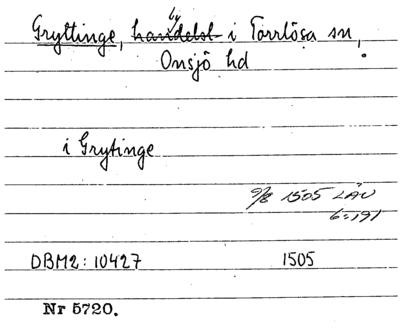 Gryttinge, by i Torrlösa sn,
Onsjö hd
i Grytinge
9/8 1505 LÄU
6:191
DBM2: 10427 1505
Nr 5720.